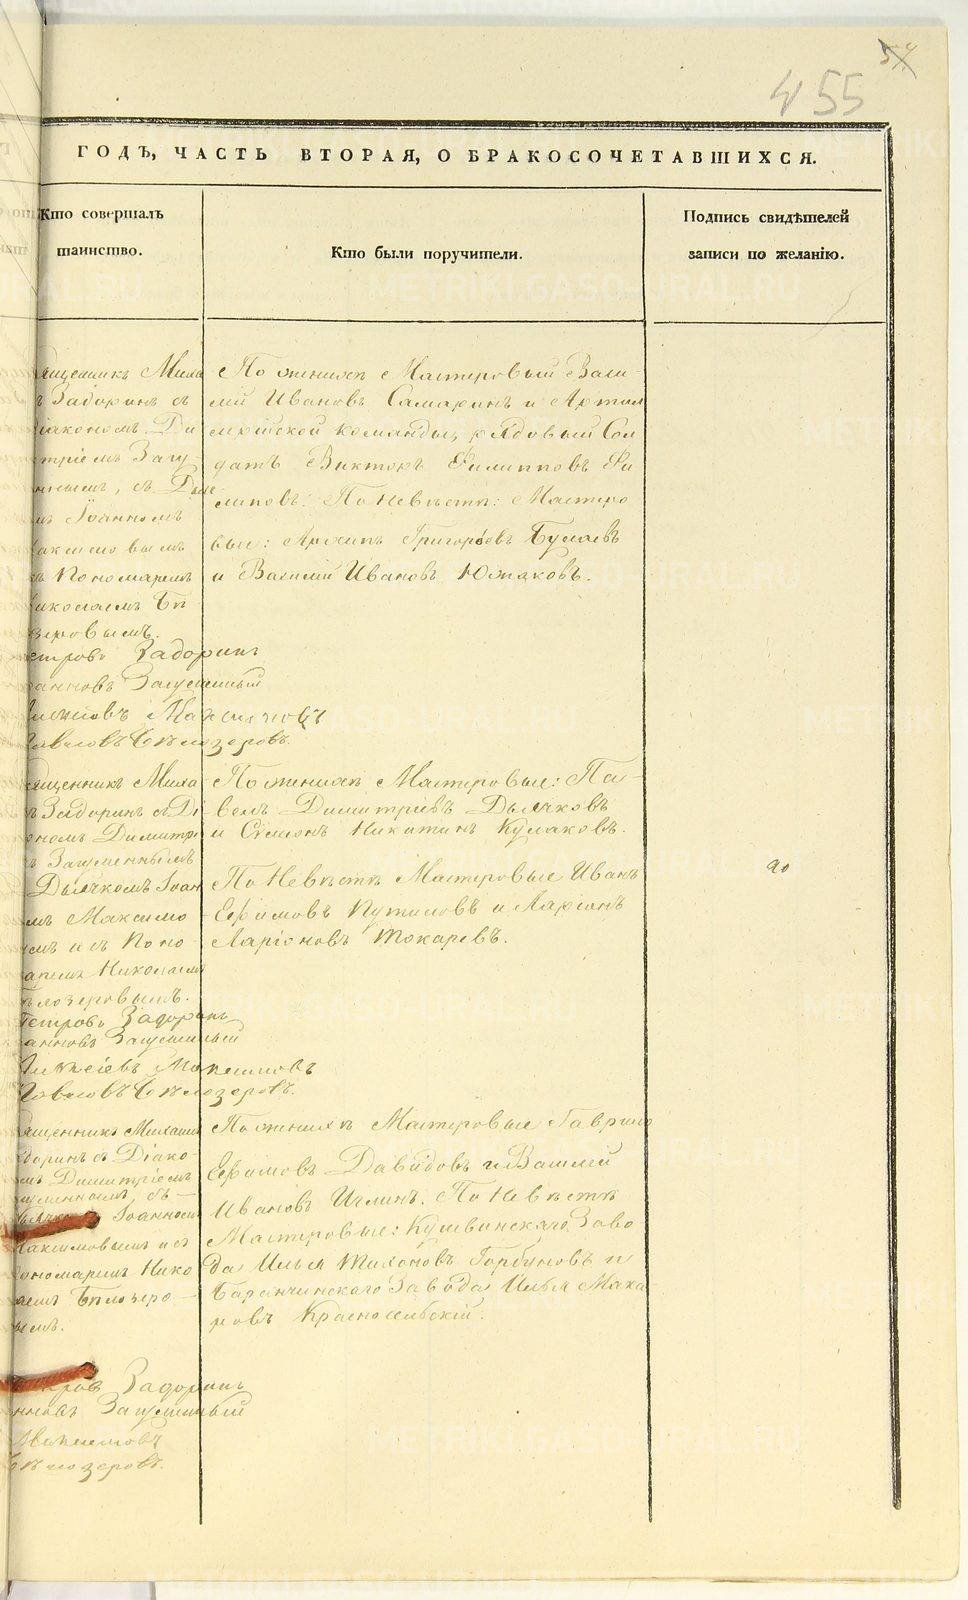 54
455
ГОДЪ, ЧАСТЬ ВТОРАЯ, О БРАКОСОЧЕТАВШИХСЯ.
Кто совершалъ
таинство.
Кто были поручители.
Подпись свидѣтелей
записи по желанію.
METRIKI.GASO-URAL.RU
ященникъ Миха
Задоринъ съ
іакономъ Ди
тріемъ Загу
ннымъ, съ Дьяч
мъ Іоанномъ
аксимовымъ
Пономаремъ
иколаемъ Бѣ
зеровымъ.
етровъ Задоринъ
анновъ Загуменный
Максимовъ
авловъ Бѣлозеровъ.
По женихѣ Мастеровый Васи-
лій Ивановъ Самаринъ и Артил
лерійской команды, рядовый Сол
датъ Викторъ Филипповъ Фи
липовъ. По Невѣстѣ: Мастеро
вые: Архипъ Григорьевъ Булаевъ
и Василий Ивановъ Южаковъ.
ященникъ Миха
Задоринъ съ Ді
ономъ Димитрі
Загуменнымъ
Дьячкомъ Іоан
мъ Максимо
и съ Поно
аремъ Николаемъ
лозеровымъ.
Петровъ Задоринъ
анновъ Загуменный
Алексіевъ Максимовъ
Павловъ Бѣлозеровъ.
По женихѣ Мастеровые: Па-
велъ Димитріевъ Дьячковъ
и Симонъ Никитинъ Кулаковъ.
По Невѣстѣ Мастеровые Иванъ
Ефимовъ Путиловъ и Ларіонъ
Ларіоновъ Токаревъ.
ященникъ Михаилъ
доринъ съ Діако-
мъ Димитріемъ
уменнымъ, съ
Іоанномъ
Максимовымъ и съ
ономаремъ Нико
аемъ Бѣлозеро
ымъ.
Задоринъ
нновъ Загуменный
Максимовъ
Бѣлозеровъ.
По женихѣ Мастеровые Гаврило
Ефимовъ Давидовъ и Василий
Ивановъ Иглинъ. По Невѣстѣ
Мастеровые: Кушвинскаго Заво
да Илья Тихоновъ Горбуновъ и
Баранчинскаго Завода Илья Мака
ровъ Красносельский.